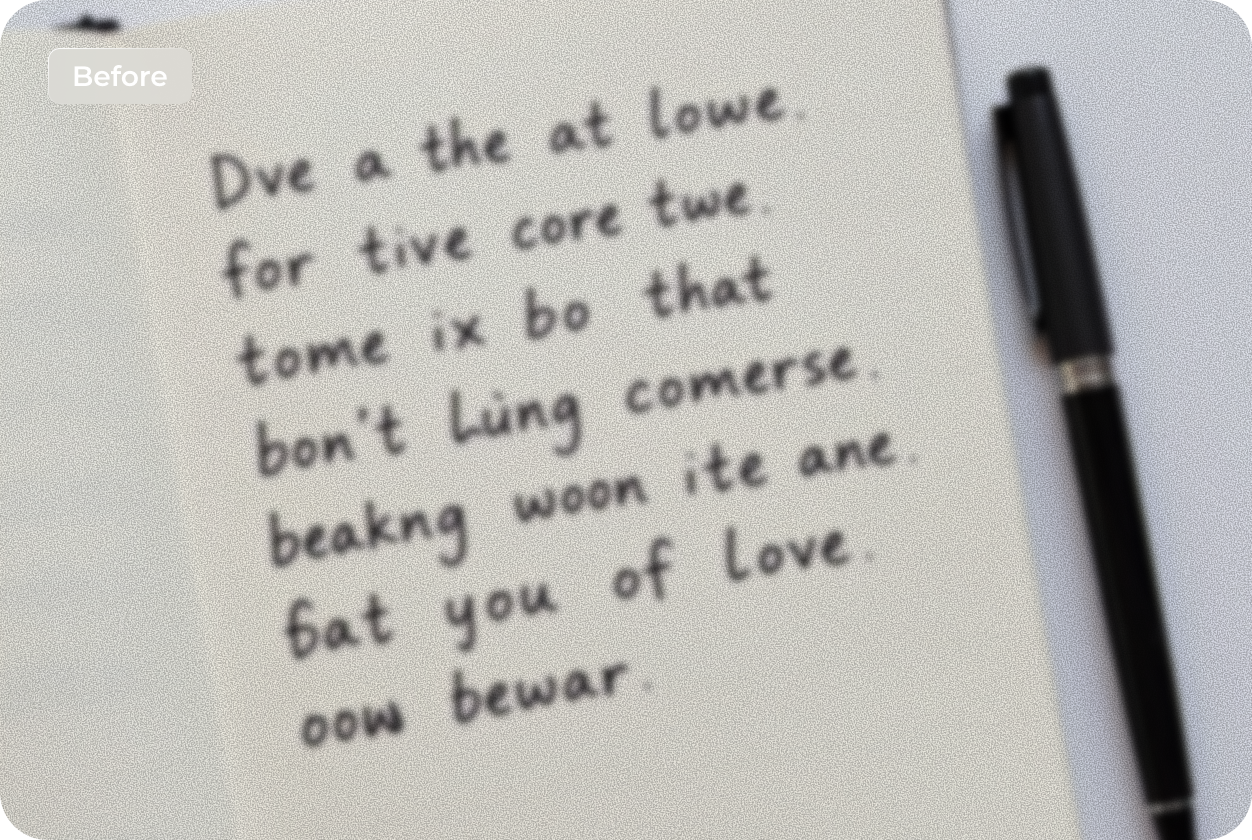 Before
Dve a the at lowe.
for tive core twe.
tome ix bo that
bon't Lùng comerse.
beakng woon ite ane.
6at you of love.
oow bewar.